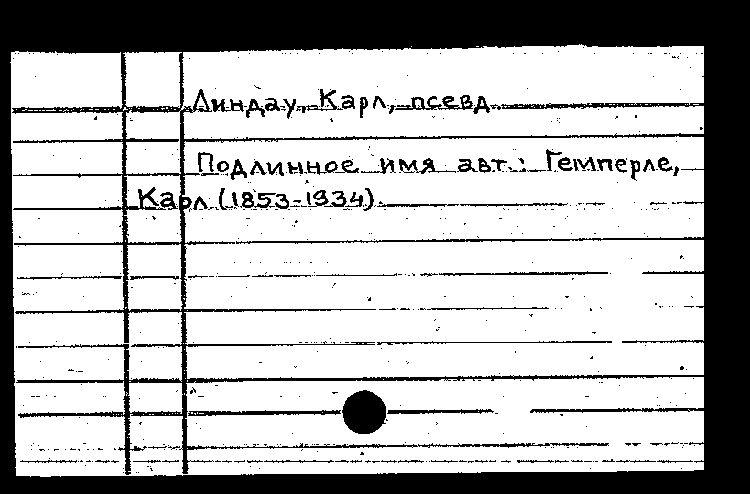 Линдау, Карл, псевд.
Подлинное имя авт.: Гемперле,
Карл (1853-1934).